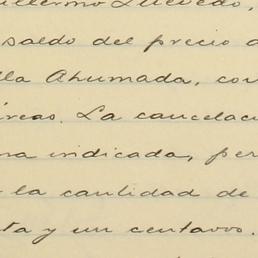 uillermo Quevedo,
saldo del precio d
lla Ahumada, con
áreas. La cancelaci
na indicada, per
la cantidad de
ta y un centavos.